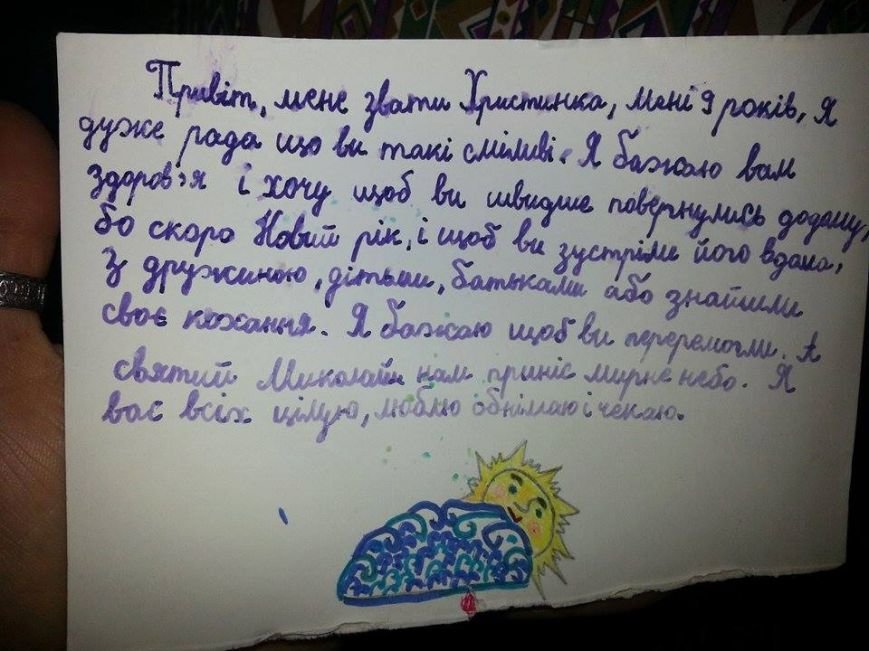 Привіт, мене звати Христинка, мені 9 років, я
дуже рада що ви такі сміливі. Я бажаю вам
здоров'я і хочу щоб ви швидше повернулись додому,
бо скоро Новий рік, і щоб ви зустріли його вдома,
з дружиною, дітьми, батьками або знайшли
своє кохання. Я бажаю щоб ви переремогли. А
святий Миколай нам приніс мирне небо. Я
вас всіх цілую, люблю обнімаю і чекаю.